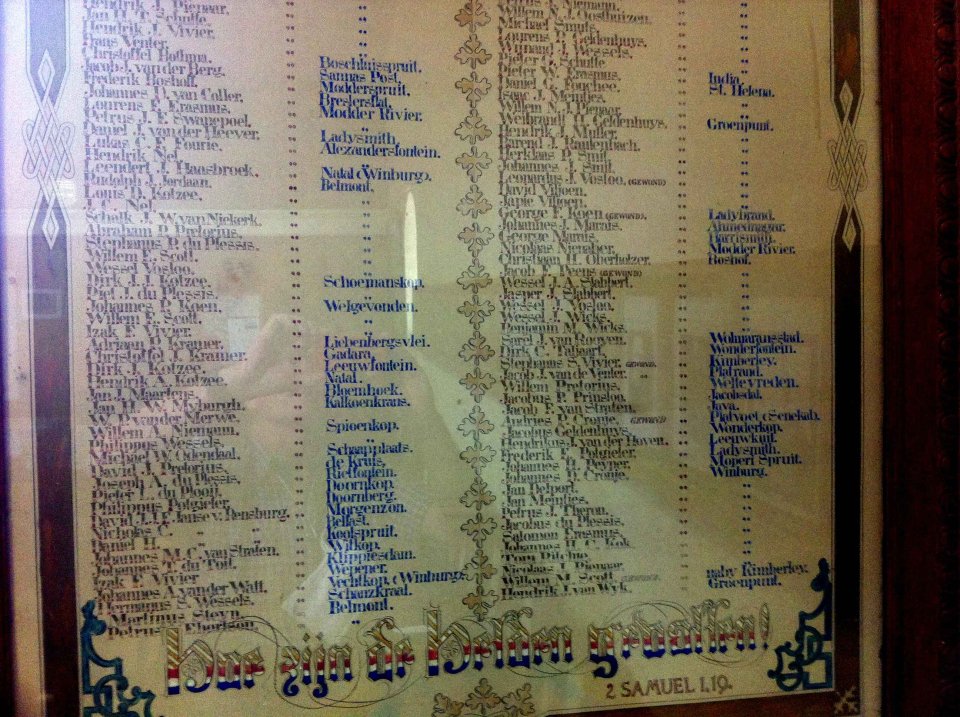 Hendrik J. Pienaar.
Jan H. Schutte.
Hendrik J. Vivier.
Frans Venter.
Christoffel Bothma.
Jacob J. van der Berg. Boschluisspruit.
Frederik Roshoff. Sannas Post.
Johannes D. van Coller. Modderspruit.
Lourens P. Erasmus. Breslersflat.
Petrus J. E. Swanepoel. Modder Rivier.
Daniel J. van der Heever. "
Lukas C. F. Fourie. Ladysmith.
Hendrik Nel. Alexandersfontein.
Leendert J. Haasbroek. "
Rudolph J. Jordaan. Natal (Winburg).
Louis D. Kotzee. Belmont.
Nel
Schalk J. W. van Niekerk.
Abraham P. Pretorius.
Stephanus P. du Plessis.
Willem E. Scott.
Wessel Vosloo.
Dirk J. J. Kotzee. Schoemanskop.
Piet J. du Plessis.
Johannes P. Koen. Welgevonden.
Willem E. Scott.
Izak F. Vivier.
Adriaen P. Kramer. Liebenbergsvlei.
Christoffel J. Kramer. Gadara.
Dirk J. Kotzee. Leeuwfontein.
Hendrik A. Kotzee. Natal.
Jan J. Maartens. Bloemhoek.
Jan H. W. Myburgh. Kalkoenkrans.
W. P. van der Merwe.
Willem A. Niemann. Spioenkop.
Philippus Wessels.
Michael W. Odendaal. Schaapplaats.
David J. Pretorius. de Kruis.
Joseph A. du Plessis. Rietfontein.
Pieter L. du Plooij. Doornkop.
Philippus Potgieter. Doornberg.
David J. H. Janse v. Rensburg. Morgenzon.
Nicholas C. " " Belfast.
Daniel H. " " Rooispruit.
Johannes M. C. van Straten. Witkop.
Johannes J. du Toit. Klippiesdam.
Izak F. Vivier. Wepener.
Johannes A. van der Watt. Vechtkop (Winburg).
Hermanus S. Wessels. Schanzkraal.
Martinus Steyn. Belmont.
Ebertson. "
Petrus Niemann.
Willem N. J. Oosthuizen.
Michael Smuts.
Lourens H. Geldenhuys.
Wijnand J. Wessels.
Pieter C. Schutte
Pieter W. Erasmus. India.
Daniel C. Fouchee. St. Helena.
Isac J. Meintjes.
Willem N. J. Pienaar.
Weibrandt H. Geldenhuys. Groenpunt.
Hendrik J. Muller.
Barend J. Rautenbach.
Herklaas P. Smit.
Johannes J. Smit.
Leonardus J. Vosloo. (GEWOND)
David Viljoen.
Japie Viljoen.
George F. Koen (GEWOND). Ladybrand.
Johannes J. Marais. Ahmednagar.
George Marais. Harrismith.
Nicolaas Nienaber. Modder Rivier.
Christiaan H. Oberholzer. Boshof.
Jacob F. Peens (GEWOND)
Wessel J. A. Slabbert.
Jasper J. Slabbert.
Wessel J. Vosloo.
Wessel J. Wicks.
Benjamin M. Wicks.
Sarel J. van Rooyen. Wolmaransstad.
Dirk C. Taljaart. Wonderfontein.
Stephanus S. Vivier. GEWOND. Kimberley.
Jacob J. van de Venter. Platrand.
Willem Pretorius. Weltevreden.
Jacobus P. Prinsloo. Jacobsdal.
Jacob F. van Straten. Java.
Andries P. Cronje. GEWOND Platvoet (Senekal).
Jacobus Geldenhuys. Wonderkop.
Hendrikus J. van der Hoven. Leeuwkuil.
Frederik E. Potgieter. Ladysmith.
Johannes H. Peyper. Moperi Spruit.
Johannes J. Cronje. Winburg.
Jan Delport.
Jan Meintjes.
Petrus J. Theron.
Jacobus du Plessis.
Salomon Erasmus.
Johannes H. C. Kok.
Tom Ritchie.
Nicolaas J. Pienaar. naby Kimberley.
Willem M. Scott. GEWOND. Groenpunt.
Hendrik J. van Wyk.
Hoe zijn de Helden gevallen!
2 SAMUEL 1,19.